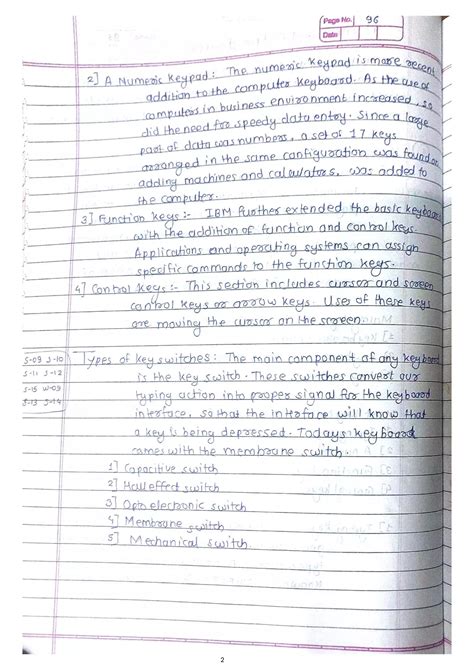 Page No. 96
Date
2] A Numeric Keypad: The numeric keypad is more recent
addition to the computer keyboard. As the use of
computers in business environment increased, so
did the need for speedy data entry. Since a large
part of data was numbers, a set of 17 keys
arranged in the same configuration was found on
adding machines and calculators, was added to
the computer.
3] Function keys :- IBM further extended the basic keyboard
with the addition of function and control keys.
Applications and operating systems can assign
specific commands to the function keys.
4] Control keys :- This section includes cursor and screen
control keys or arrow keys. Uses of these keys
are moving the cursor on the screen.
S-09 S-10
S-11 S-12
S-15 W-09
S-13 S-14
Types of key switches: The main component of any keyboard
is the key switch. These switches convert our
typing action into proper signal for the keyboard
interface, so that the intrface will know that
a key is being depressed. Todays keyboard
comes with the membrane switch.
1] Capacitive switch
2] Hall effect switch
3] Opto electronic switch
4] Membrane switch
5] Mechanical switch
2